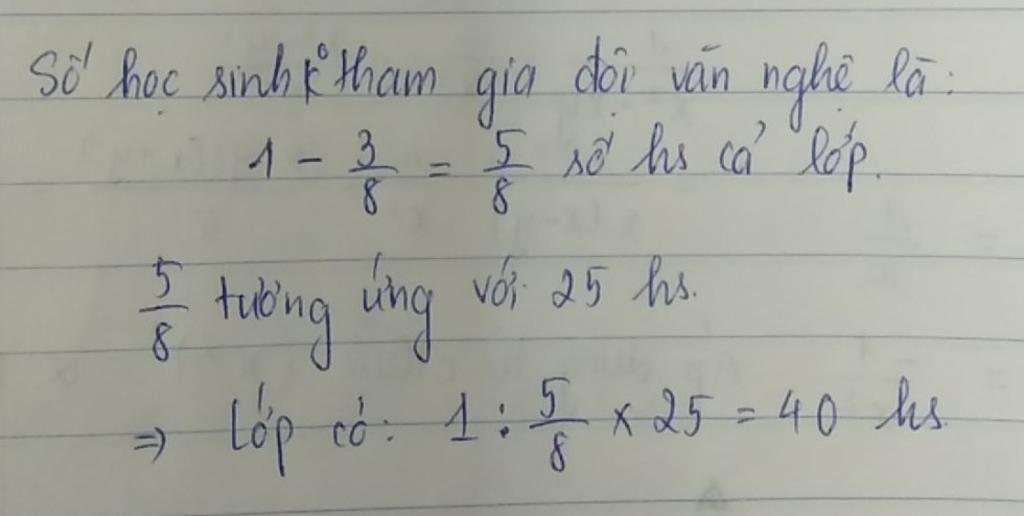 Số học sinh k° tham gia đội văn nghệ là:
1 - 3/8 = 5/8 số hs cả lớp.
5/8 tương ứng với 25 hs.
⇒ Lớp có: 1 : 5/8 × 25 = 40 hs